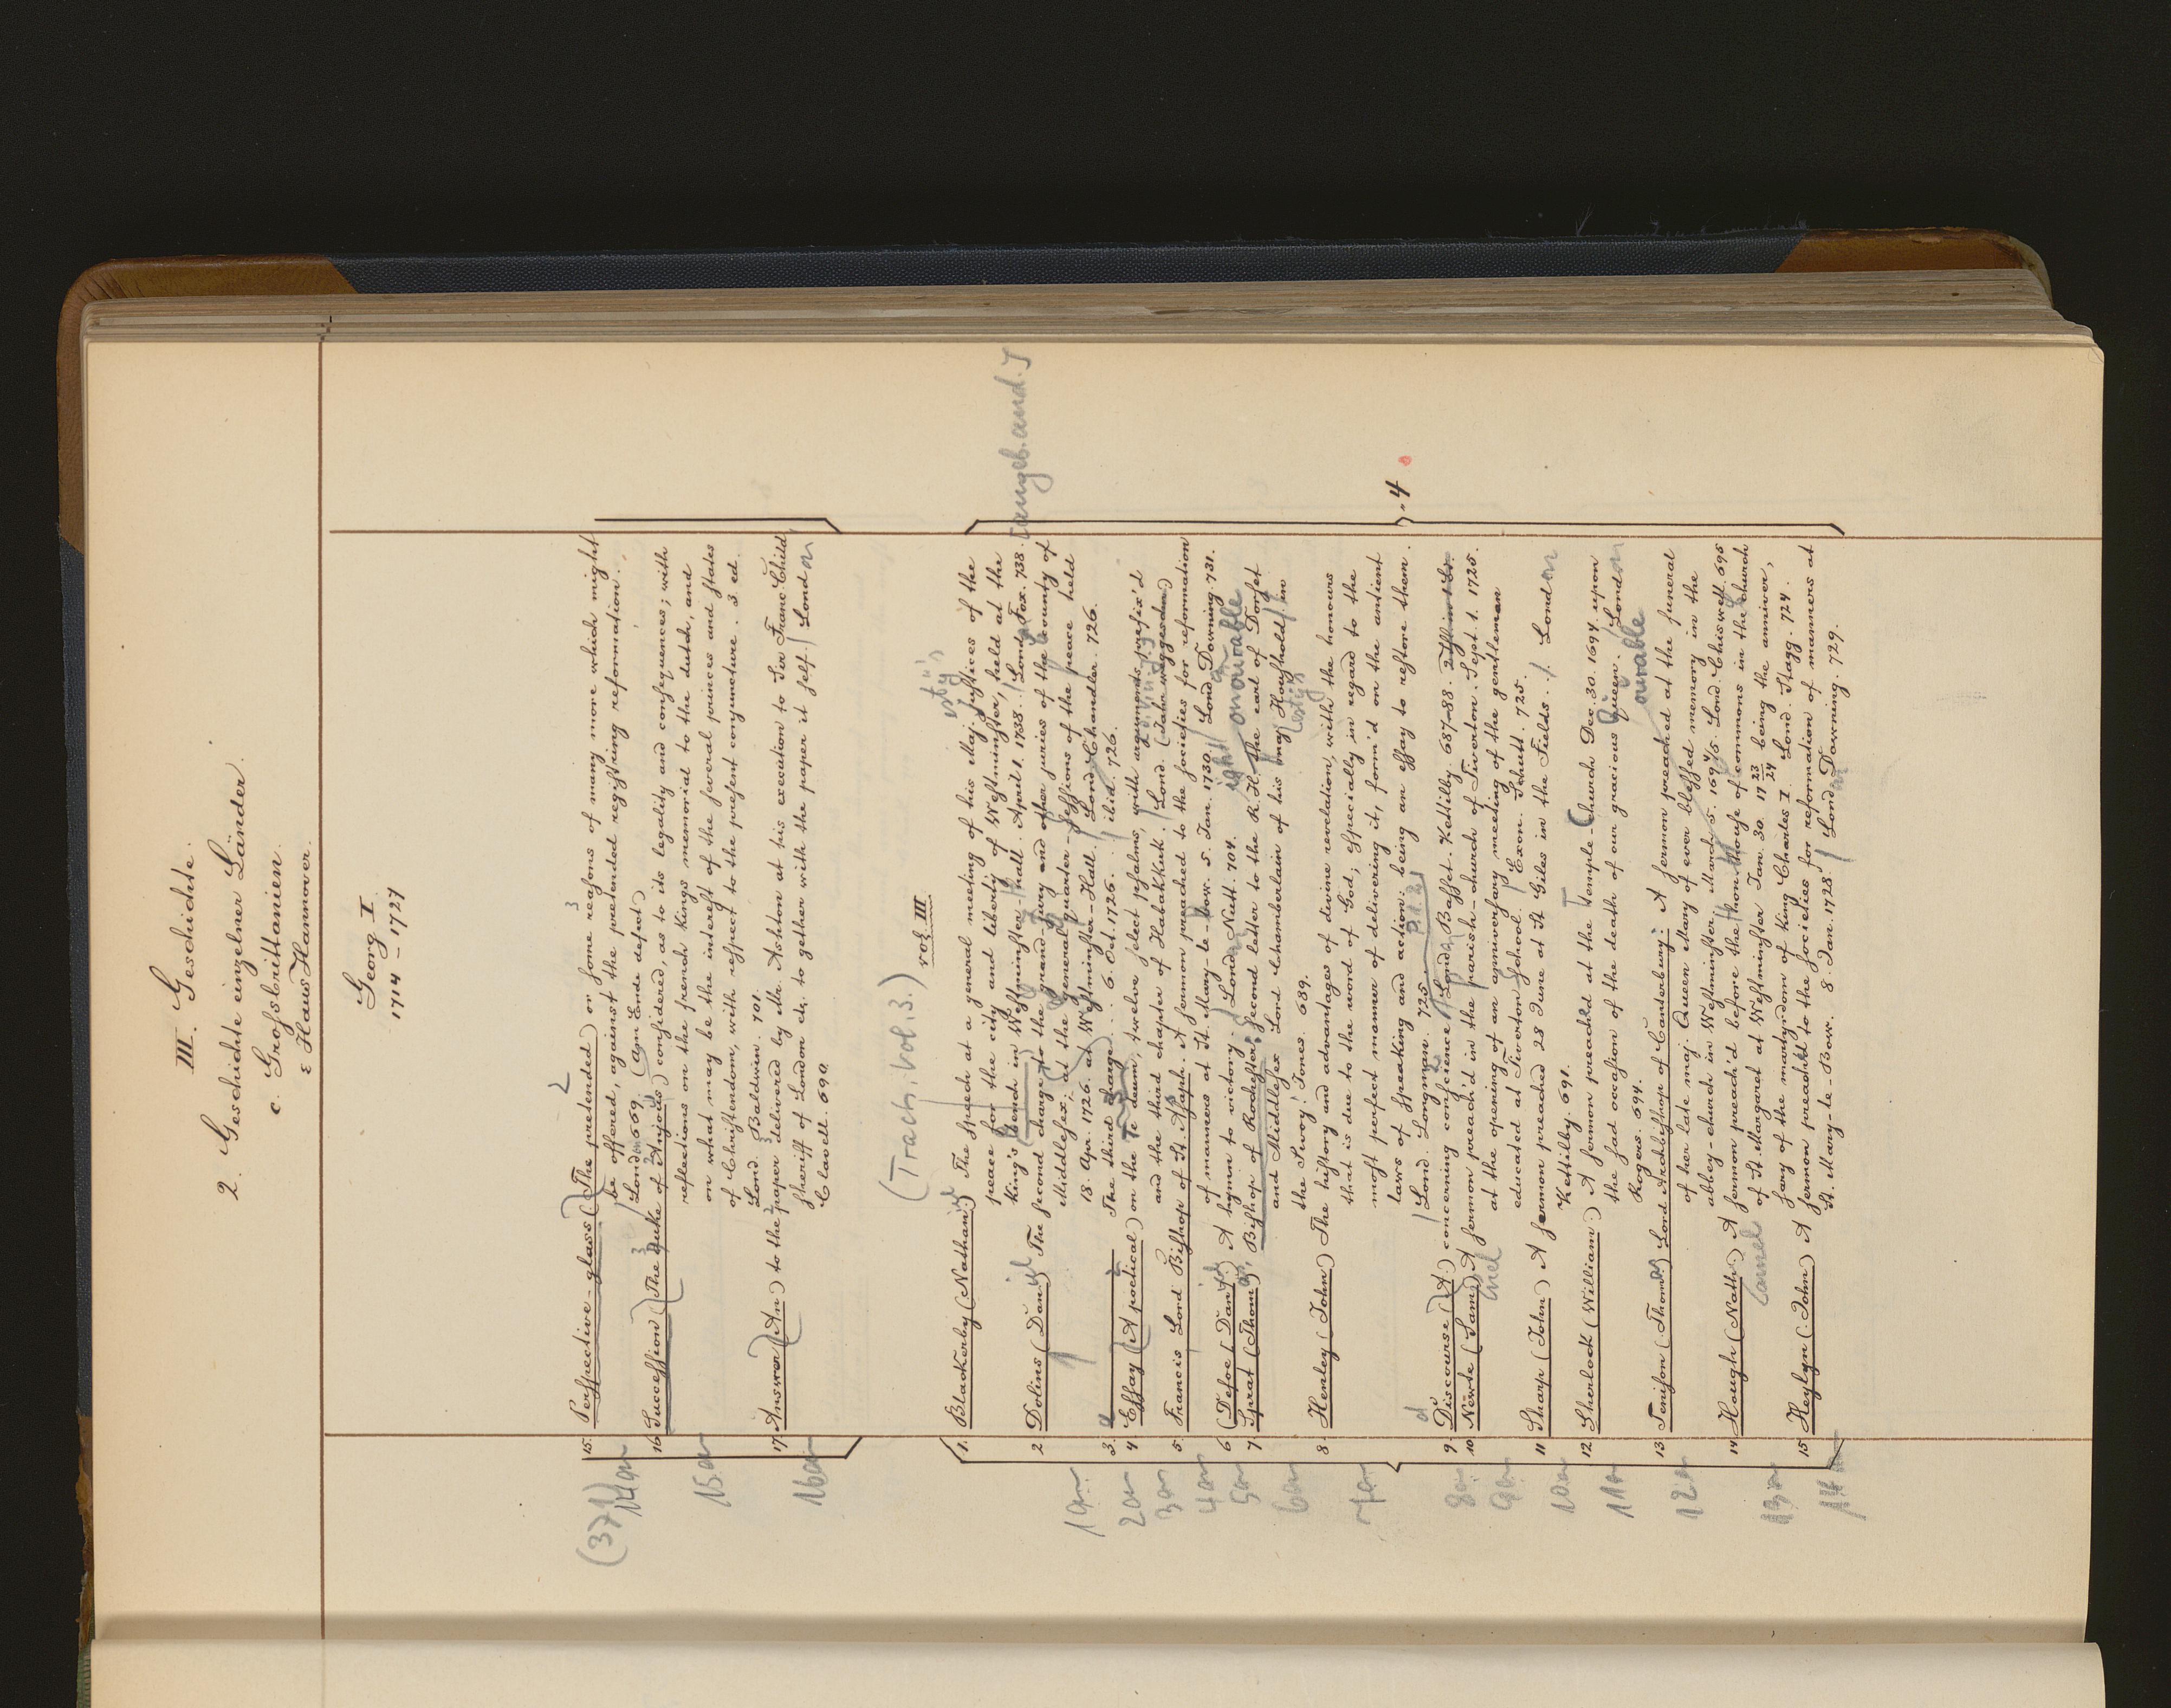 III. Geschichte.
2. Geschichte einzelner Länder.
c. Großbrittanien.
ε Haus Hannover.
Georg I.
1714 – 1727
15. Perspective-glass (The pretended) or some reasons of many more which might
be offered, against the pretended registring reformation.
London 669. (am Ende defect)
16. Succession (The duke of Anjous) considered, as to its legality and consequences; with
reflections on the french Kings memorial to the dutch, and
on what may be the interest of the several princes and states
of Christendom, with respect to the present conjuncture. 3 ed.
Lond. Baldwin. 701.
17. Answer (An) to the paper delivered by Mr. Ashton at his execution to Sir Franc Child
sheriff of London etc. to gether with the paper it self. London
Clavell. 690.
(37)
14an
15an
16an
(Tracts, vol. 3.) vol. III
1. Blackerby (Nathan) The speech at a general meeting of his Maj. justices of the
peace for the city and liberty of Westminster, held at the
King's bench in Westminster-hall. April 1. 1738. Lond. Fox. 738. [angeb. and. J
2. Dolins (Dan) The second charge to the grand jury and other juries of the county of
Middlesex; at the general quarter-sessions of the peace held
18. Apr. 1726. at Westminster-Hall. Lond. Chandler. 726.
3. The third charge ... 6. Oct. 1726. ibid. 726.
4. Essay (A poetical) on the te deum, twelve select psalms, with arguments prefix'd
and the third chapter of Habakkuk. Lond. (Jahr weggeschn)
5. Francis Lord Bishop of St. Asaph. A sermon preached to the societies for reformation
of manners at St. Mary-le-bow. 5. Jan. 1730. Lond. Downing. 731.
6. (Defoe (Dan)) A hymn to victory. Lond. Nutt. 704.
7. Sprat (Thom), Bishop of Rochester, second letter to the R. H. the earl of Dorset
and Middlesex Lord Chamberlain of his maj Houshold in
the Savoy: Jones. 689.
8. Henley (John) The history and advantages of divine revelation, with the honours
that is due to the word of God; especially in regard to the
most perfect manner of delivering it, form'd on the antient
laws of speaking and action: being an essay to restore them.
Lond. Longman. 725.
9. Discourse (A) concerning conscience. Lond. Basset. Kettilby. 687-88.
10. Newte (Sam) A sermon preach'd in the parish-church of Tiverton. Sept. 1. 1725.
at the opening of an anniversary meeting of the gentlemen
educated at Tiverton school. Exon. Schutt. 725.
11. Sharp (John) A sermon preached 28 June at St Giles in the Fields. London
Kettilby. 691.
12. Sherlock (William) A sermon preached at the Temple-Church Dec. 30. 1694. upon
the sad occasion of the death of our gracious Queen. London
Rogers. 694.
13. Tenison (Thomas) Lord Archbishop of Canterbury: A sermon preached at the funeral
of her late maj. Queen Mary of ever blessed memory in the
abbey-church in Westminster. March 5. 1694/5. Lond. Chiswell. 695
14. Hough (Nath) A sermon preach'd before the hon. house of commons in the church
of St. Margaret at Westminster Jan. 30. 17 23/24 being the anniver,
sary of the martyrdom of King Charles I. Lond. Stagg. 724.
15. Heylyn (John) A sermon preached to the societies for reformation of manners at
St. Mary-le-Bow. 8. Jan. 1728. Lond. Downing. 729.
4
1an
2an
3an
4an
5an
6an
7an
8an
9an
10an
11an
12an
13an
14an